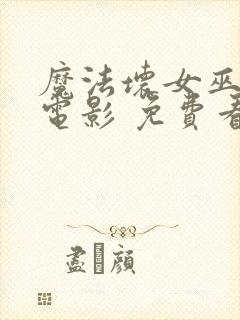 魔法壞女巫
電影 免費看